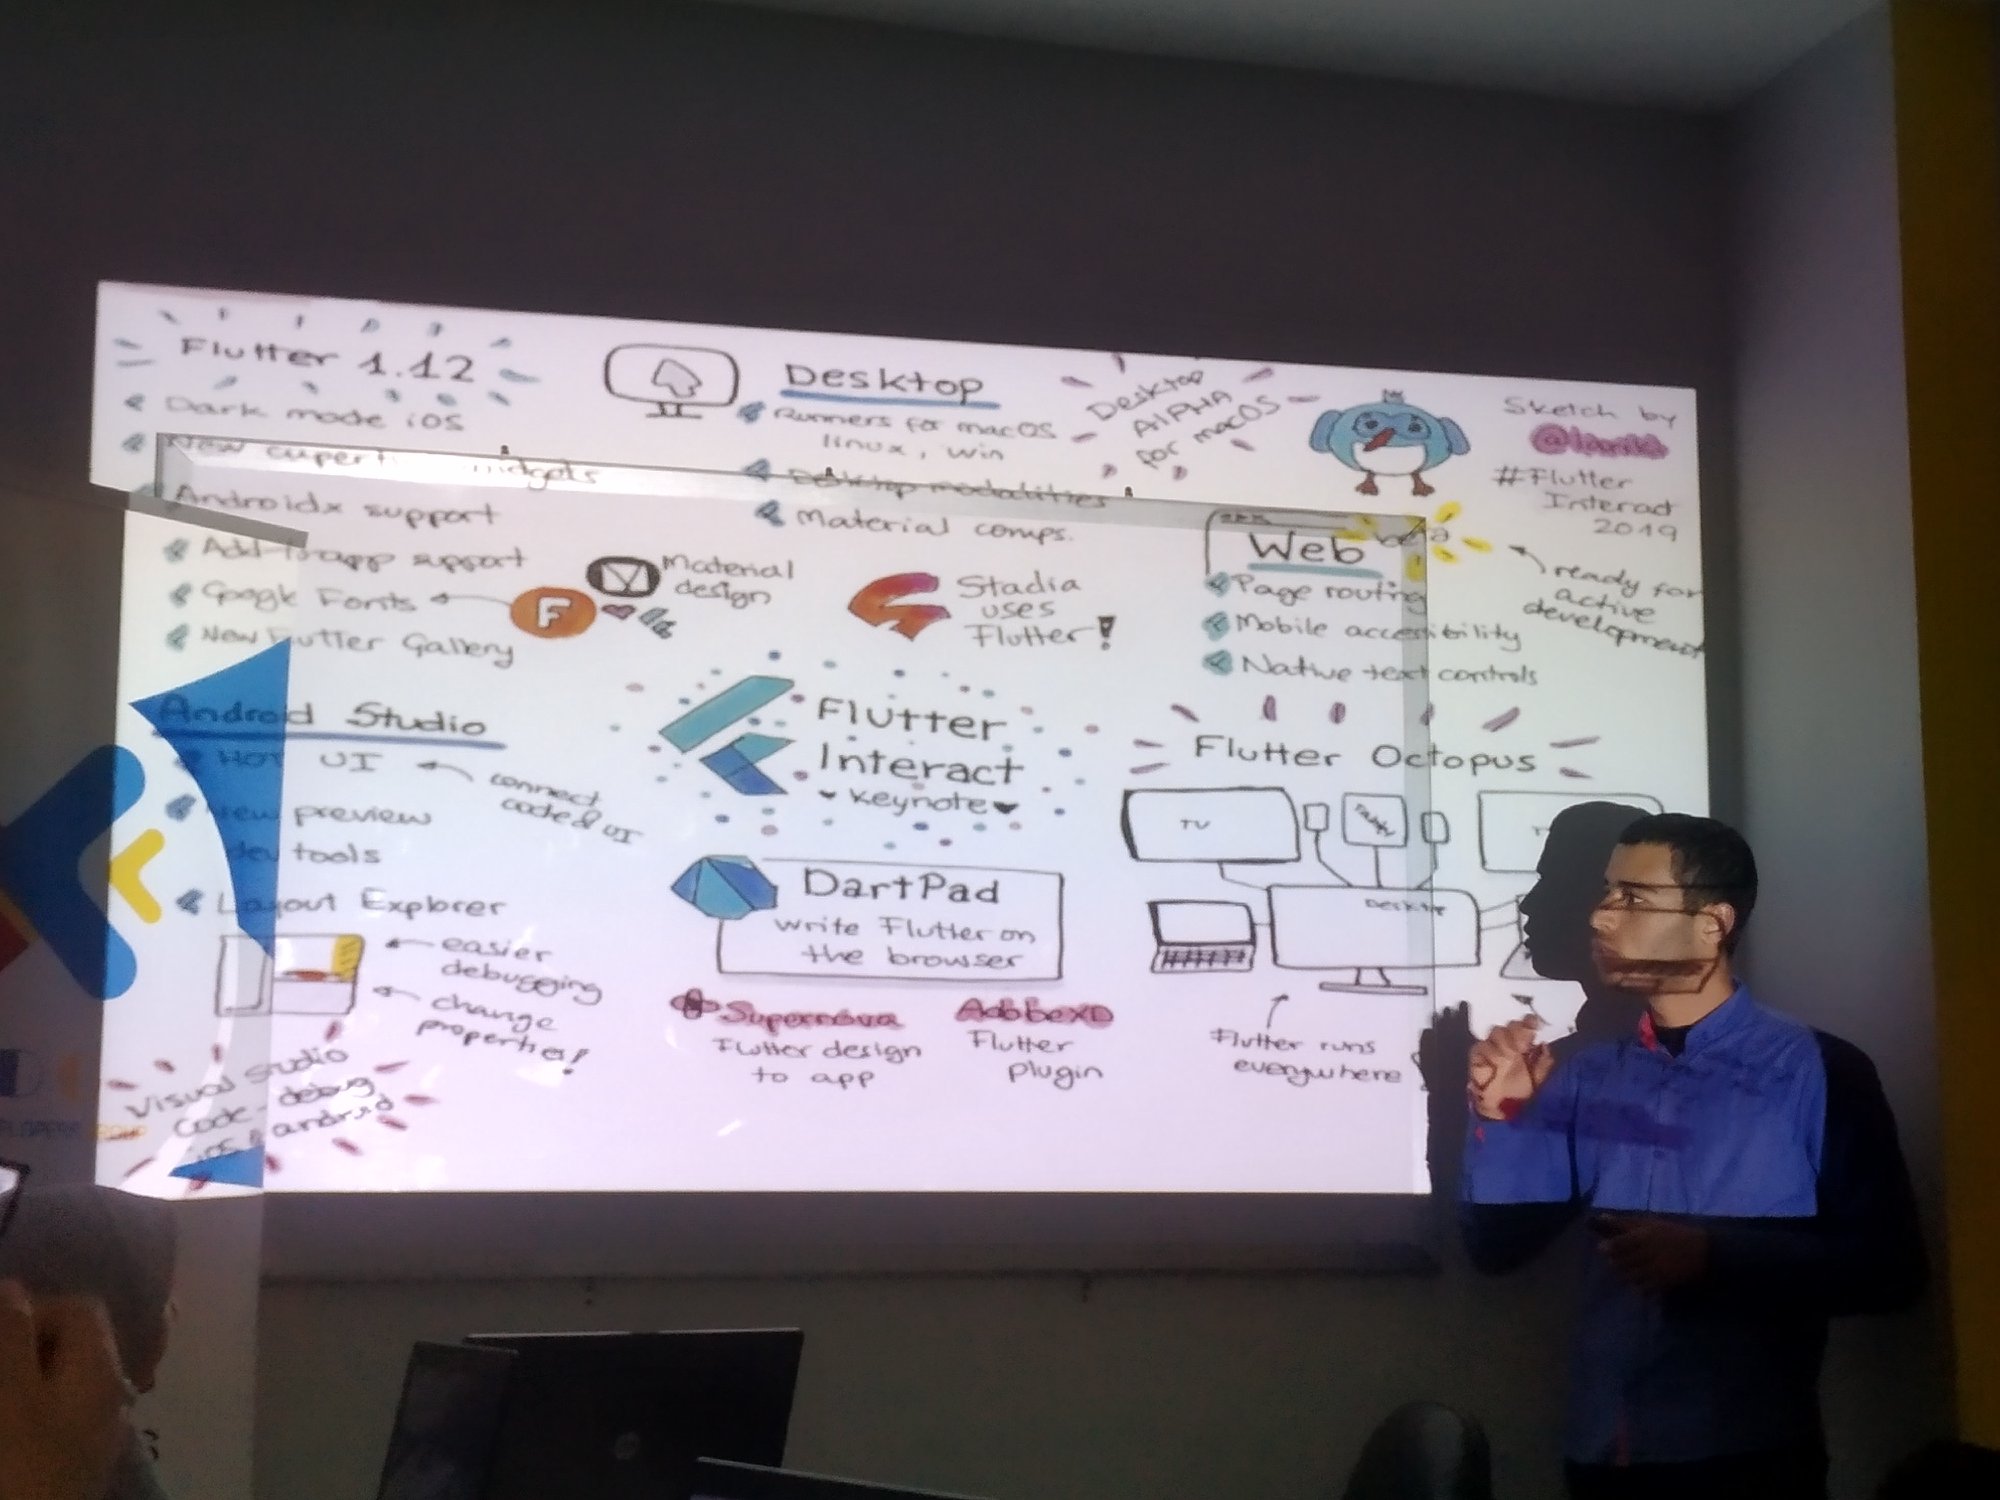 Flutter 1.12
Dark mode iOS
New cuperti widgets
Androidx support
Add-to-app support
Google Fonts
New Flutter Gallery
F
Material
design
Desktop
Runners for macOS
linux, win
Desktop modalities
Material comps.
Desktop
AlPHA
for macOS
Stadia
uses
Flutter!
Sketch by
#Flutter
Interact
2019
Web
beta
Page routing
Mobile accessibility
Native text controls
ready for
active
development
Android Studio
HOT UI
connect
code & UI
New preview
dev tools
Layout Explorer
easier
debugging
change
properties!
Visual Studio
Code - debug
iOS & android
Flutter
Interact
keynote
DartPad
write Flutter on
the browser
Supernova
Flutter design
to app
AdobeXD
Flutter
plugin
Flutter Octopus
TV
Desktop
Flutter runs
everywhere